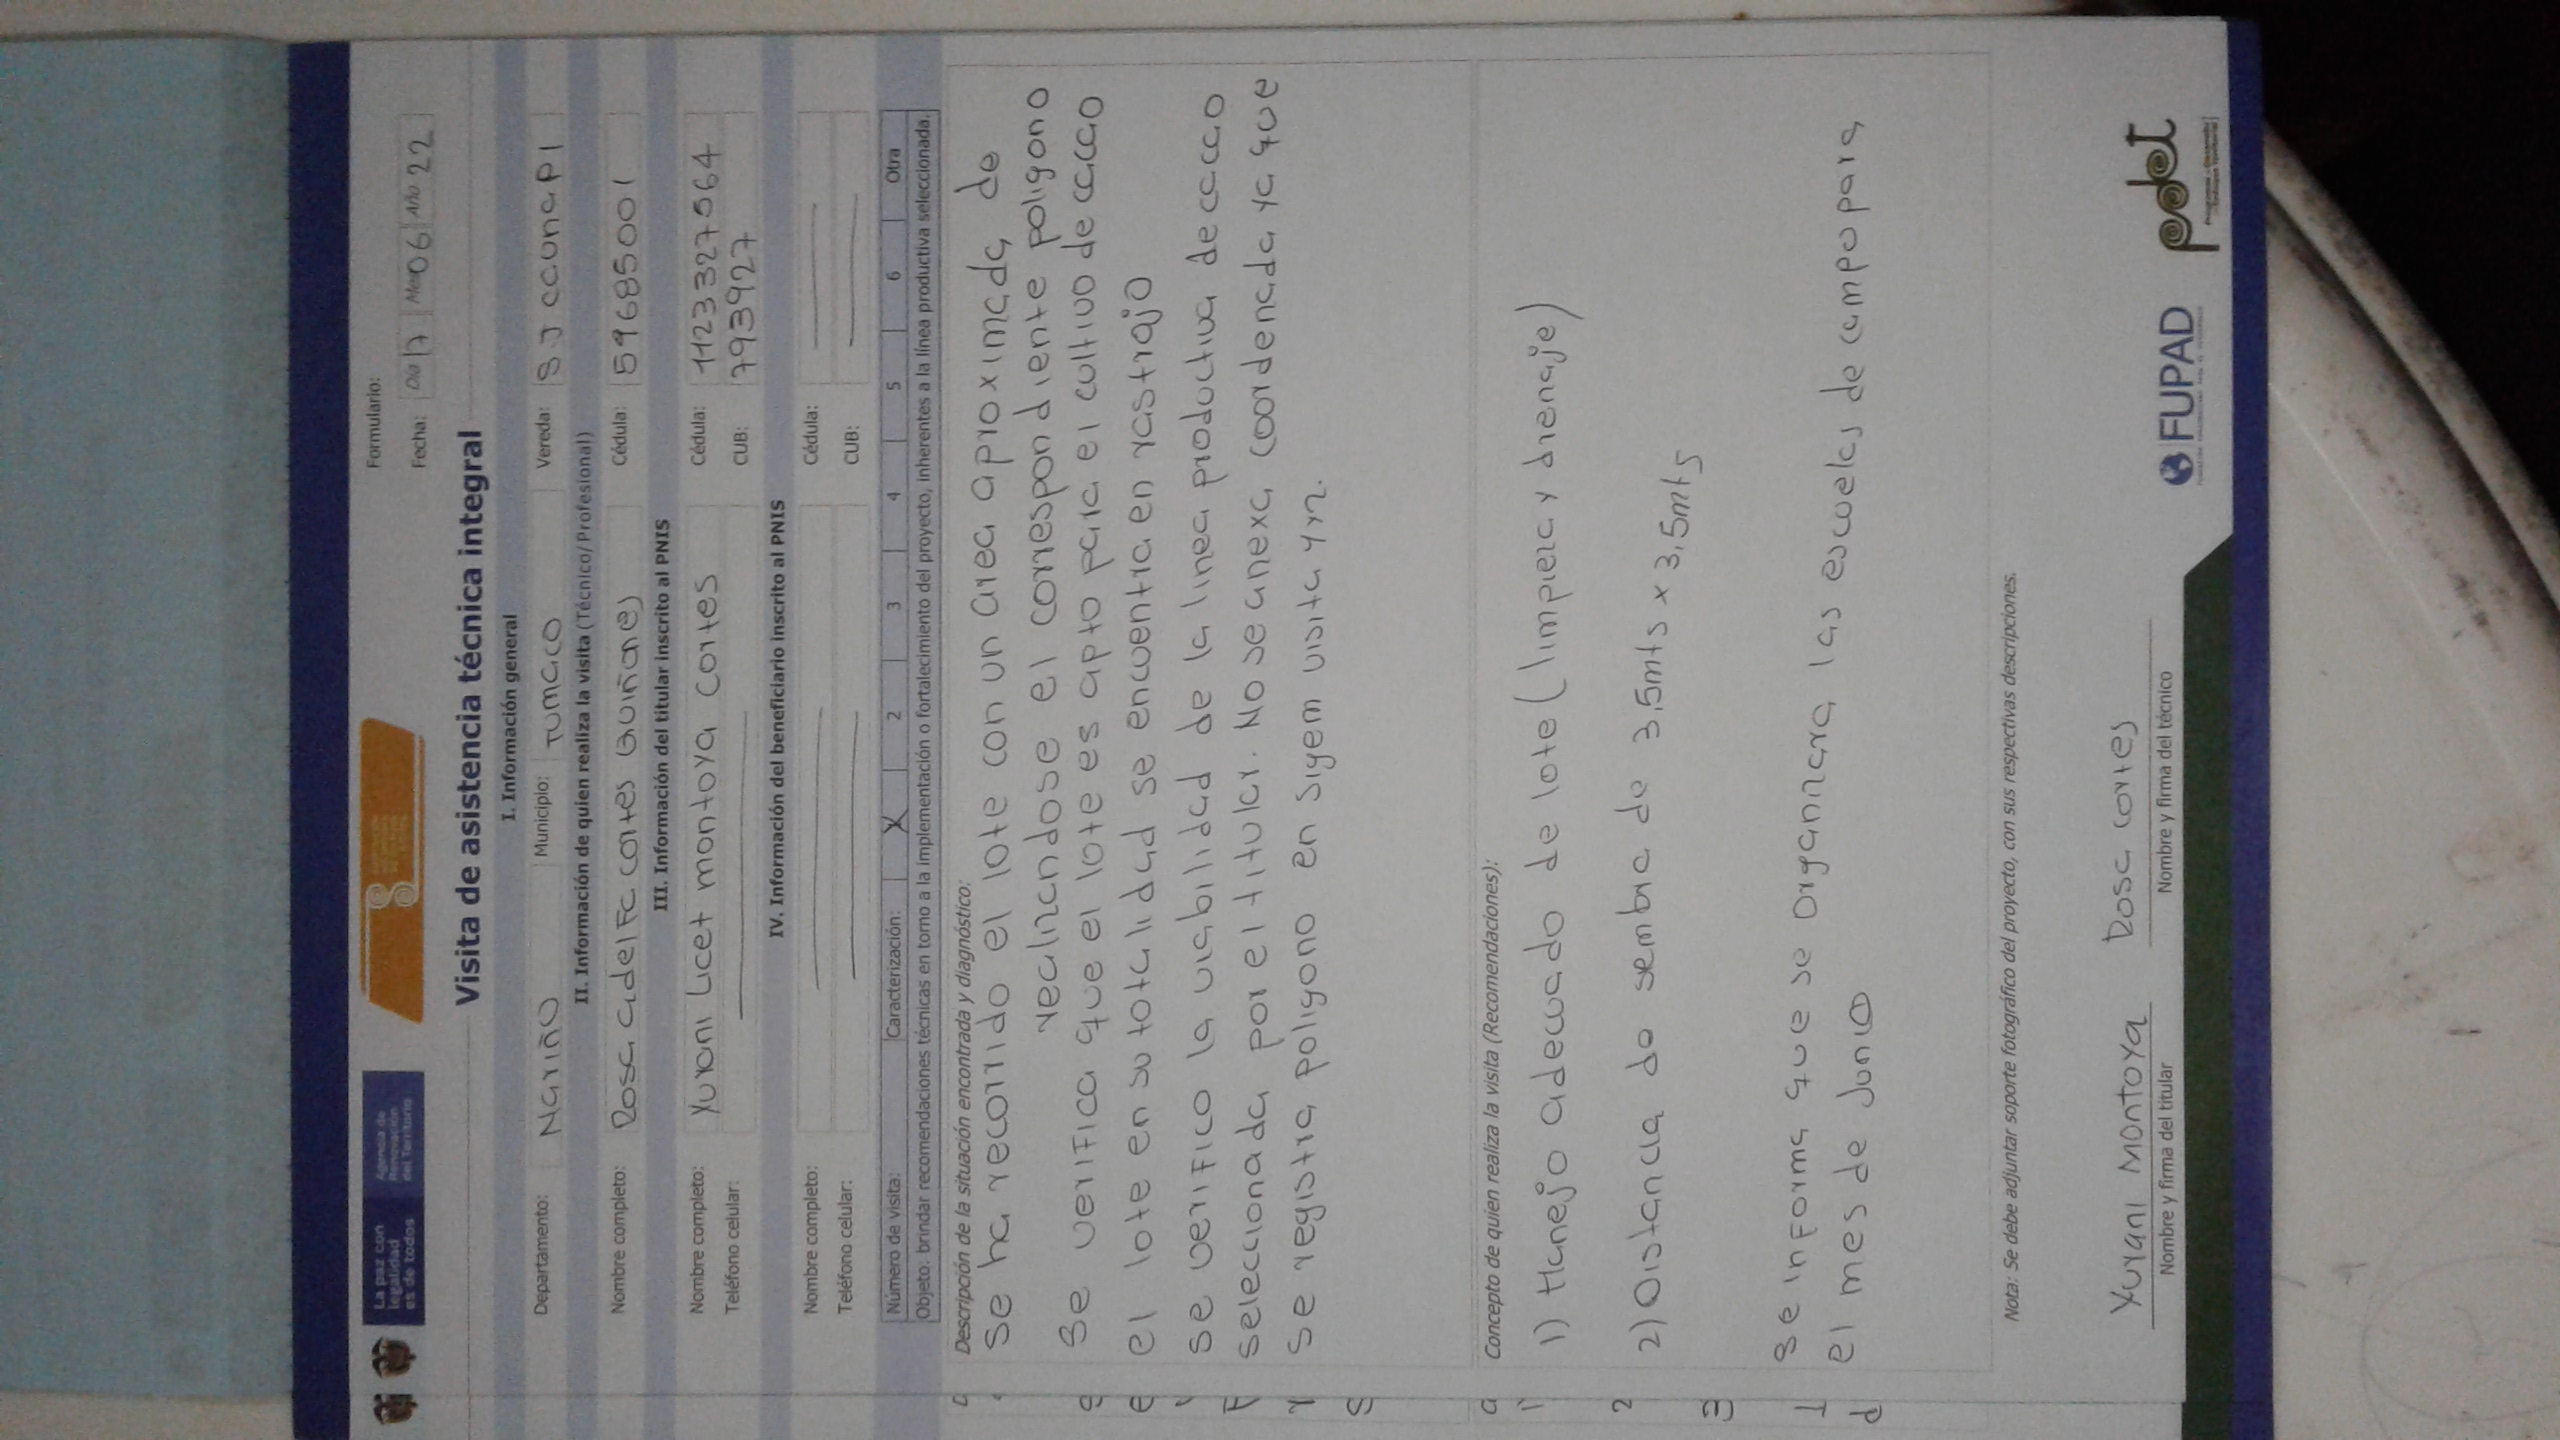 La paz con
legalidad
es de todos
Agencia de
Renovación
del Territorio
Formulario:
Fecha: Día 17 Mes 06 Año 22
Visita de asistencia técnica integral
I. Información general
Departamento: Nariño Municipio: Tumaco Vereda: SJ caunapi
II. Información de quien realiza la visita (Técnico/ Profesional)
Nombre completo: Rosa adelfa cortes Quiñones Cédula: 59685001
III. Información del titular inscrito al PNIS
Nombre completo: Yurani Licet montoya cortes Cédula: 1123327564
Teléfono celular: CUB: 793927
IV. Información del beneficiario inscrito al PNIS
Nombre completo: Cédula:
Teléfono celular: CUB:
Número de visita: Caracterización: X 2 3 4 5 6 Otra
Objeto: brindar recomendaciones técnicas en torno a la implementación o fortalecimiento del proyecto, inherentes a la línea productiva seleccionada.
Descripción de la situación encontrada y diagnóstico:
Se ha recorrido el lote con un area aproximada de
realizandose el correspondiente poligono
Se verifica que el lote es apto para el cultivo de cacao
el lote en su totalidad se encuentra en rastrojo
se verifico la viabilidad de la linea productiva de cacao
seleccionada por el titular. No se anexa coordenada ya que
se registra poligono en sigem visita 1 y 2.
Concepto de quien realiza la visita (Recomendaciones):
1) Manejo adecuado de lote (limpieza y drenaje)
2) Distancia de siembra de 3,5mts x 3,5mts
Se informa que se organizara las escuelas de campo para
el mes de Junio
Nota: Se debe adjuntar soporte fotográfico del proyecto, con sus respectivas descripciones.
Yurani Montoya Rosa cortes
Nombre y firma del titular Nombre y firma del técnico
FUPAD
pdet